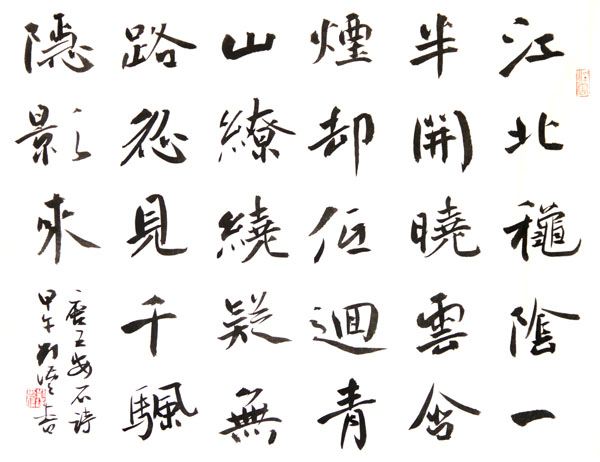 江北穐陰一
半開曉雲含
煙却低迴青
山繚繞疑無
路忽見千颿
隱影來
唐王安石詩
甲午